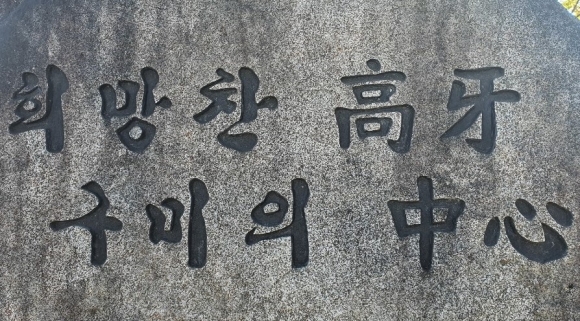 희망찬 高牙
구미의 中心